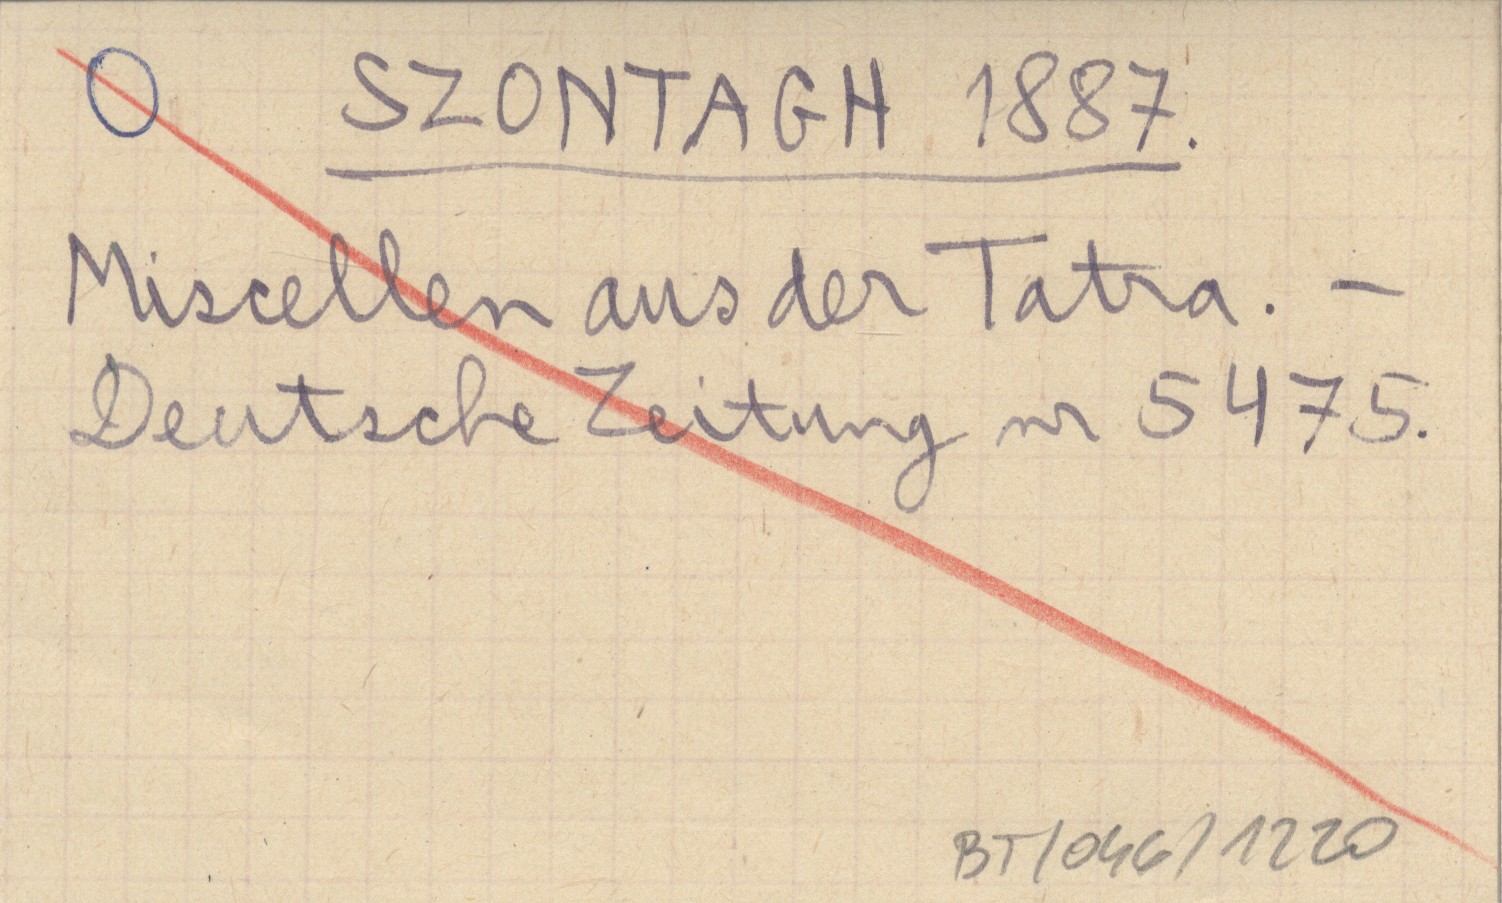 O SZONTAGH 1887.
Miscellen aus der Tatra. –
Deutsche Zeitung nr 5475.
BT/046/1220